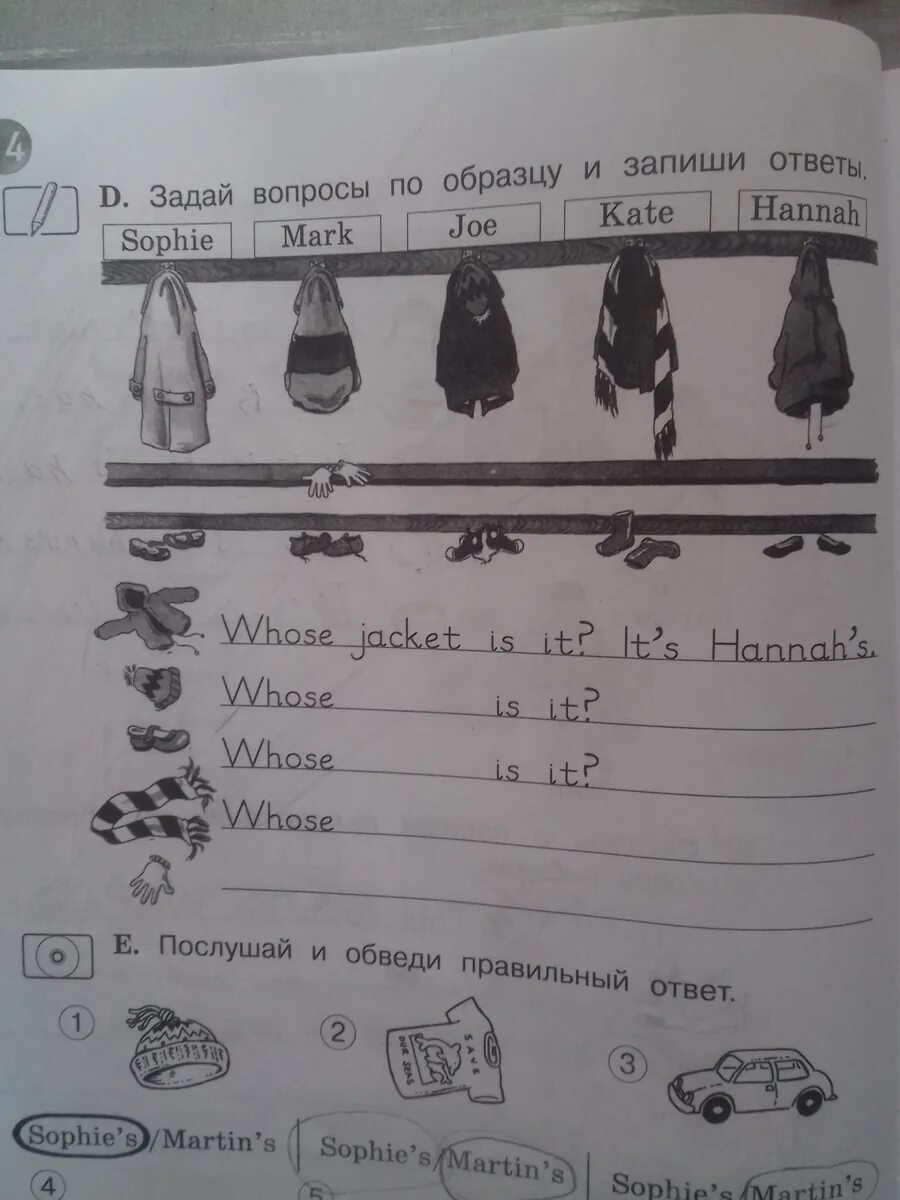 4
D. Задай вопросы по образцу и запиши ответы.
Sophie Mark Joe Kate Hannah
Whose jacket is it? It's Hannah's.
Whose is it?
Whose is it?
Whose
E. Послушай и обведи правильный ответ.
1 2 3
SAVE
OUR SEAS
Sophie's/Martin's Sophie's/Martin's Sophie's/Martin's
4 5